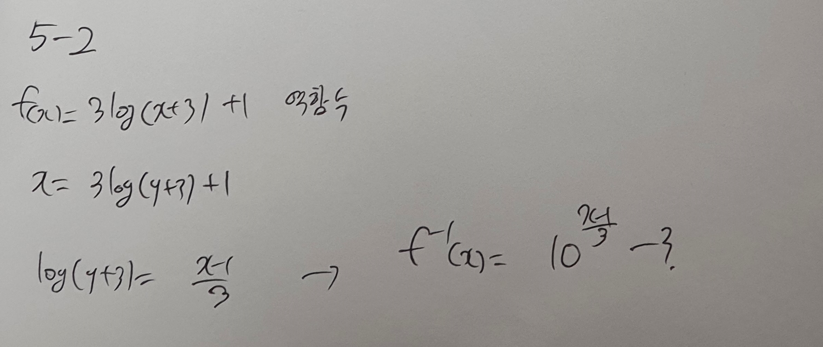 5-2
f(x)= 3log(x+3)+1 역함수
x= 3log(y+3)+1
log(y+3)= \frac{x-1}{3} → f^{-1}(x)= 10^{\frac{x-1}{3}} -3